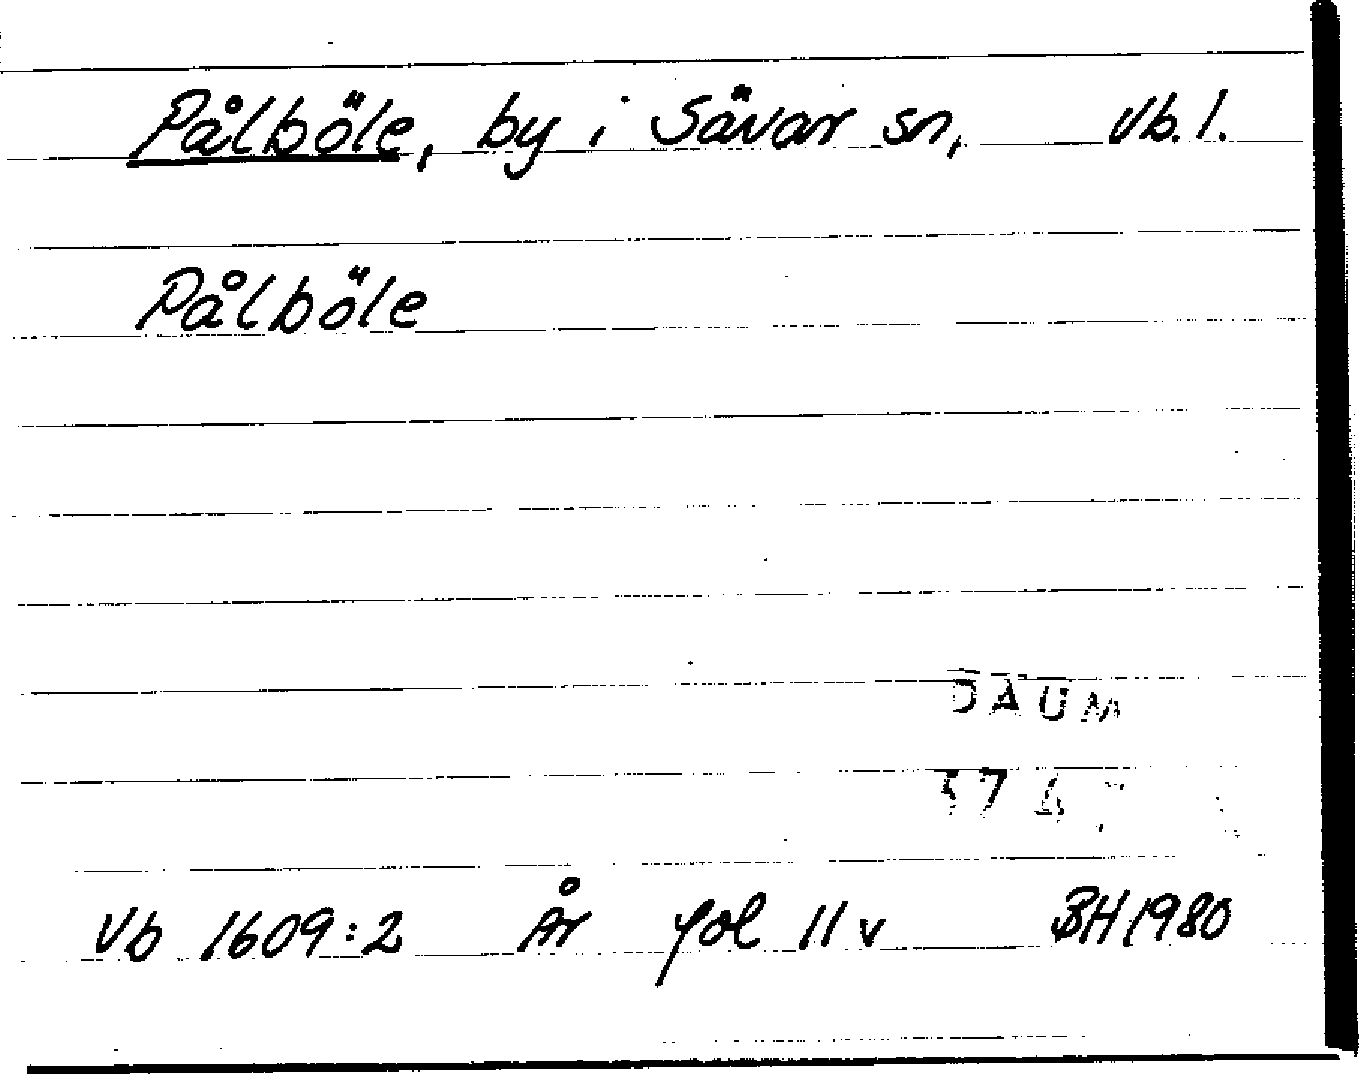 Pålböle, by i Sävar sn, Vb. l.
Pålböle
DAUM
Vb 1609:2 År fol 11 v BH 1980